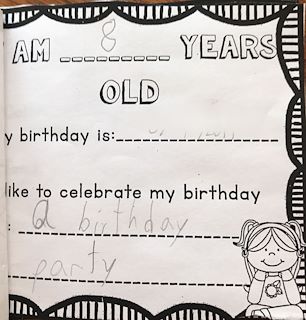 AM 8 YEARS
OLD
y birthday is:
like to celebrate my birthday
: a birthday
party